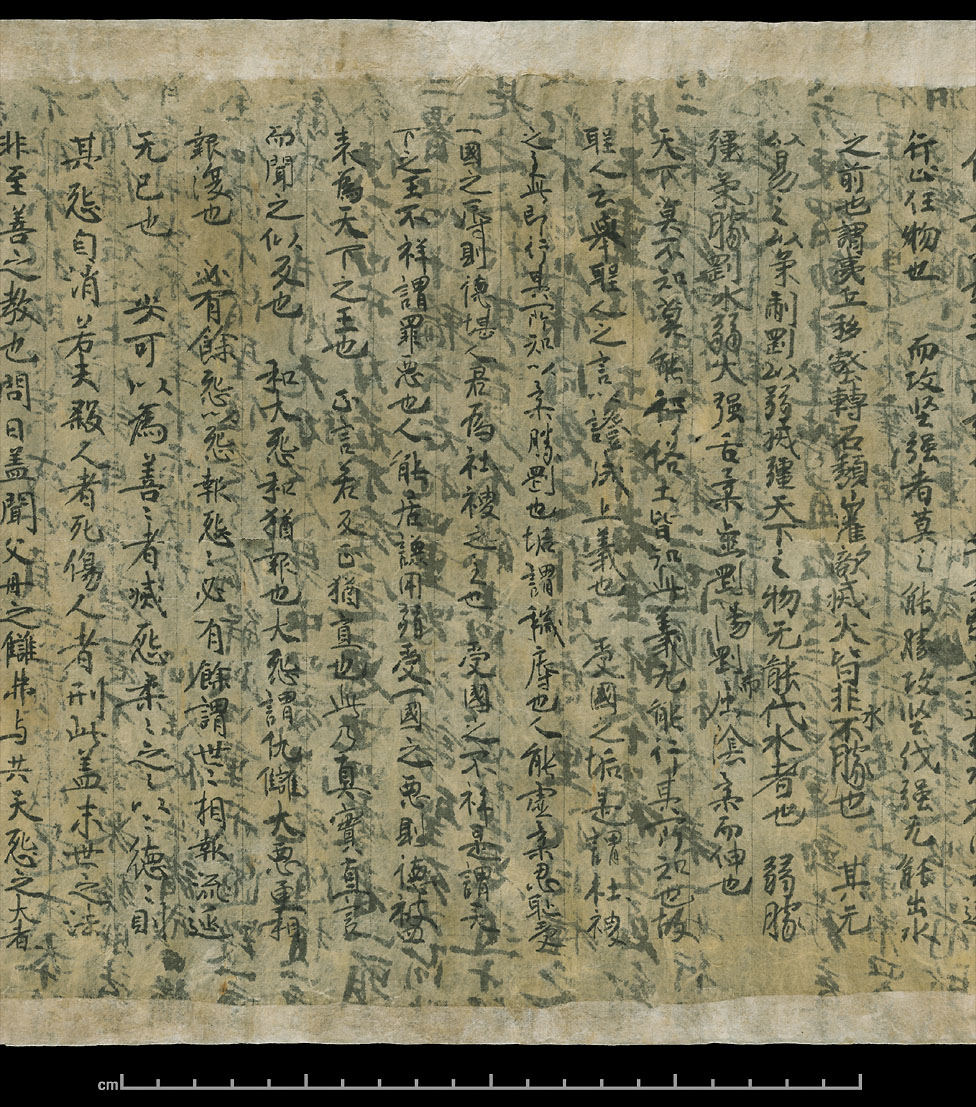 行止任物也 而攻坚强者莫之能勝攻坚伐强无能出水
之前也謂懷丘移壑轉石頽山灌敵滅火皆非水不勝也 其无
以易之以柔制剛以弱滅彊天下之物无能代水者也 弱勝
彊柔勝剛水弱火强舌柔齒剛陽剛而生陰柔而伸也
天下莫不知莫能行俗土皆知此義无能行其所知也故
聖人云舉聖人之言以證成上義也 受國之垢是謂社稷
之主此即行其所知以柔勝剛也垢謂穢辱也人能虚柔忍恥受
一國之辱則德堪人君爲社稷之主也 受國之不祥是謂天
下之王不祥謂罪惡也人能居謙用弱受一國之惡則德被
来爲天下之王也 正言若反正猶直也此乃真實直言
而聞之似反也 和大怨和猶報也大怨謂仇讎大惡重相
報復也 必有餘怨以怨報怨怨必有餘謂世世相報流延
无已也 安可以爲善善者滅怨柔柔之之以以德德則
其怨自消若夫殺人者死傷人者刑此盖末世之法
非至善之教也問曰盖聞父母之讎弗与共天怨之大者